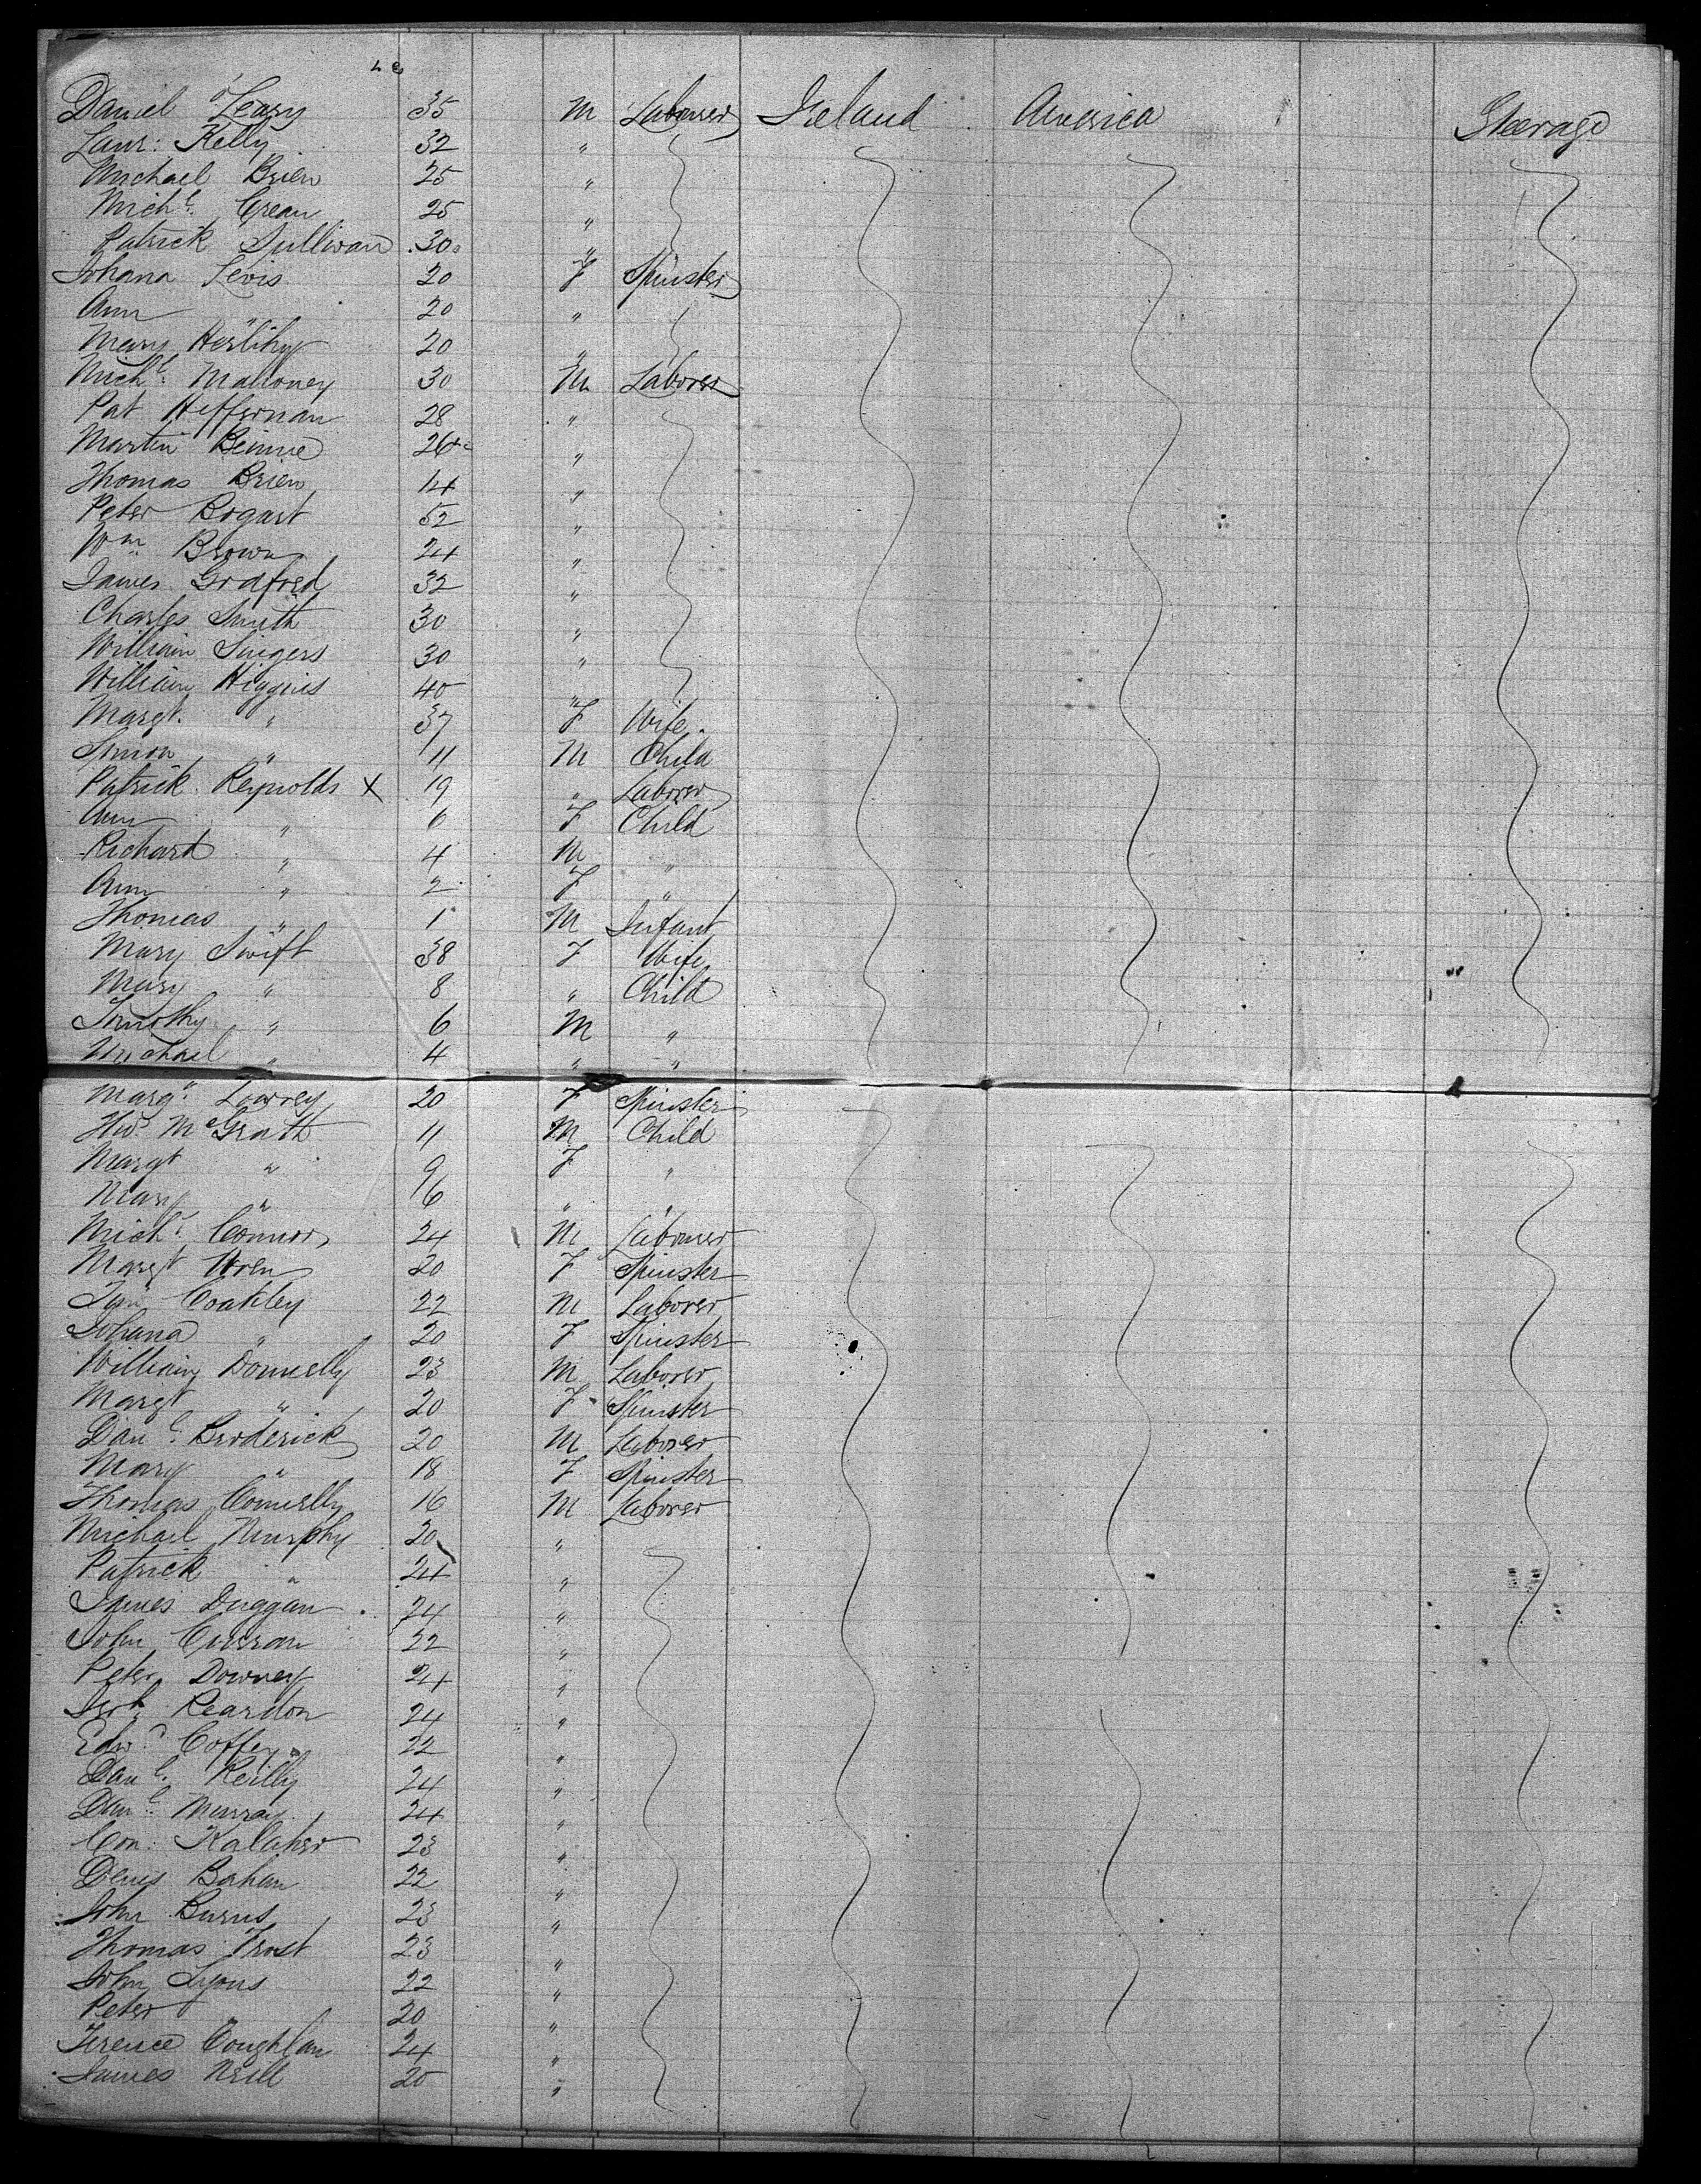 Daniel O'Leary 35 M Labourer Ireland America Steerage
Laur: Kelly 32 "
Michael Brien 25 "
Michl. Crean 25 "
Patrick Sullivan 30 "
Johana Levis 20 F Spinster
Ann " 20 "
Mary Herlihy 20 "
Michl. Mahoney 30 M Laborer
Pat Heffernan 28 "
Martin Beinne 26 "
Thomas Brien 14 "
Peter Bogart 52 "
Wm Brown 24 "
James Godfred 32 "
Charles Smith 30 "
William Singers 30 "
William Higgins 40 "
Margt. " 37 F Wife
Simon " 11 M Child
Patrick Reynolds X 19 " Laborer
Ann " 6 F Child
Richard " 4 M "
Ann " 2 F "
Thomas " 1 M Infant
Mary Swift 38 F Wife
Mary " 8 " Child
Timothy " 6 M "
Michael " 4 " "
Margt. Lowrey 20 F Spinster
McGrath 11 M Child
Margt " 9 F "
Mary " 6 " "
Michl. Connor 24 M Labourer
Margt Hren 20 F Spinster
Coakley 22 M Laborer
Johana " 20 F Spinster
William Donnelly 23 M Laborer
Margt " 20 F Spinster
Danl. Broderick 20 M Laborer
Mary " 18 F Spinster
Thomas Connelly 16 M Laborer
Michael Murphy 20 "
Patrick " 24 "
James Duggan 24 "
John Curran 22 "
Peter Downey 24 "
Jerh. Reardon 24 "
Edwd. Coffey 22 "
Danl. Reilly 24 "
Danl. Murray 24 "
Con. Kalaher 23 "
Denis Bahan 22 "
John Burns 23 "
Thomas Frost 23 "
John Lyons 22 "
Peter " 20 "
Terence Coughlan 24 "
James Neill 20 "